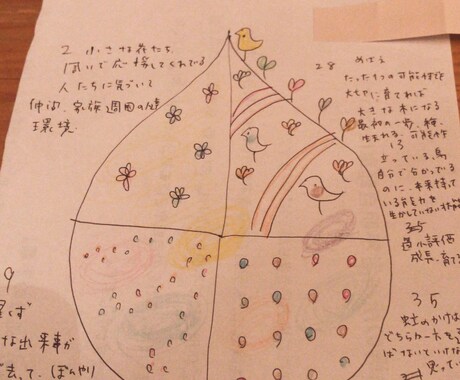 2 小さな花たち
聞いて応援してくれてる
人たちに気づいて
仲間、家族周囲の人
環境
28 めばえ
たった1つの可能性を
大切に育てれば
大きな木になる
最初の一歩、種、
生まれる、可能性
13
立っている鳥
自分で分かっている
のに、本来持って
いる能力を
生かしていない状態
35
過小評価
成長、育てる
35
虹のかけは
どちらか一方を
ばないといけな
思ってい
9
な出来事が
去って、ぼんやり